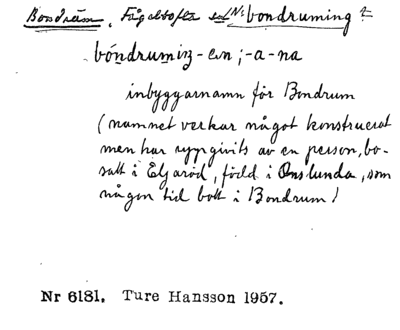 Bondrum, Fågeltofta sn Nr bondruming
bóndrumiŋ - en ; -a -na
inbyggarnamn för Bondrum
(namnet verkar något konstruerat
men har uppgivits av en person, bo-
satt i Eljaröd, född i Onslunda, som
någon tid bott i Bondrum)
Nr 6181. Ture Hansson 1957.